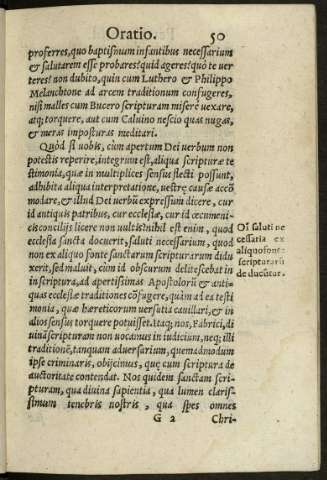 Oratio. 50
proferres, quo baptismum infantibus necessarium
& salutarem esse probares? quid ageres? quò te uer
teres? non dubito, quin cum Luthero & Philippo
Melanchtone ad arcem traditionum confugeres,
nisi malles cum Bucero scripturam miserè uexare,
atq; torquere, aut cum Caluino nescio quas nugas,
& meras imposturas meditari.
Quòd si uobis, cùm apertum Dei uerbum non
potestis reperire, integrum est, aliqua scripturæ te
stimonia, quæ in multiplices sensus flecti possunt,
adhibita aliqua interpretatione, uestræ causæ accō
modare, & illud Dei verbū expressum dicere, cur
id antiquis patribus, cur ecclesiæ, cur id œcumeni-
cis concilijs licere non uultis? nihil est enim, quod
ecclesia sancta docuerit, saluti necessarium, quod
non ex aliquo fonte sanctarum scripturarum didu
xerit, sed maluit, cùm id obscurum delitescebat in
scriptura, ad apertissimas Apostolorū & anti-
quas ecclesiæ traditiones cōfugere, quàm ad ea testi
monia, quæ hæreticorum uersutia cauillari, & in
alios sensus torquere potuisset. Itaq; nos, Fabrici, di
uinā scripturam non uocamus in iudicium, neq; illi
traditionē, tanquam aduersarium, quemadmodum
ipse criminaris, obijcimus, quę cum scriptura de
auctoritate contendat. Nos quidem sanctam scri-
pturam, qua diuina sapientia, qua lumen clariss-
simum tenebris nostris, qua spes omnes
G 2 Chri-
Oīa saluti ne
cessaria ex
aliquo fonte
scripturarū
deducūtur.